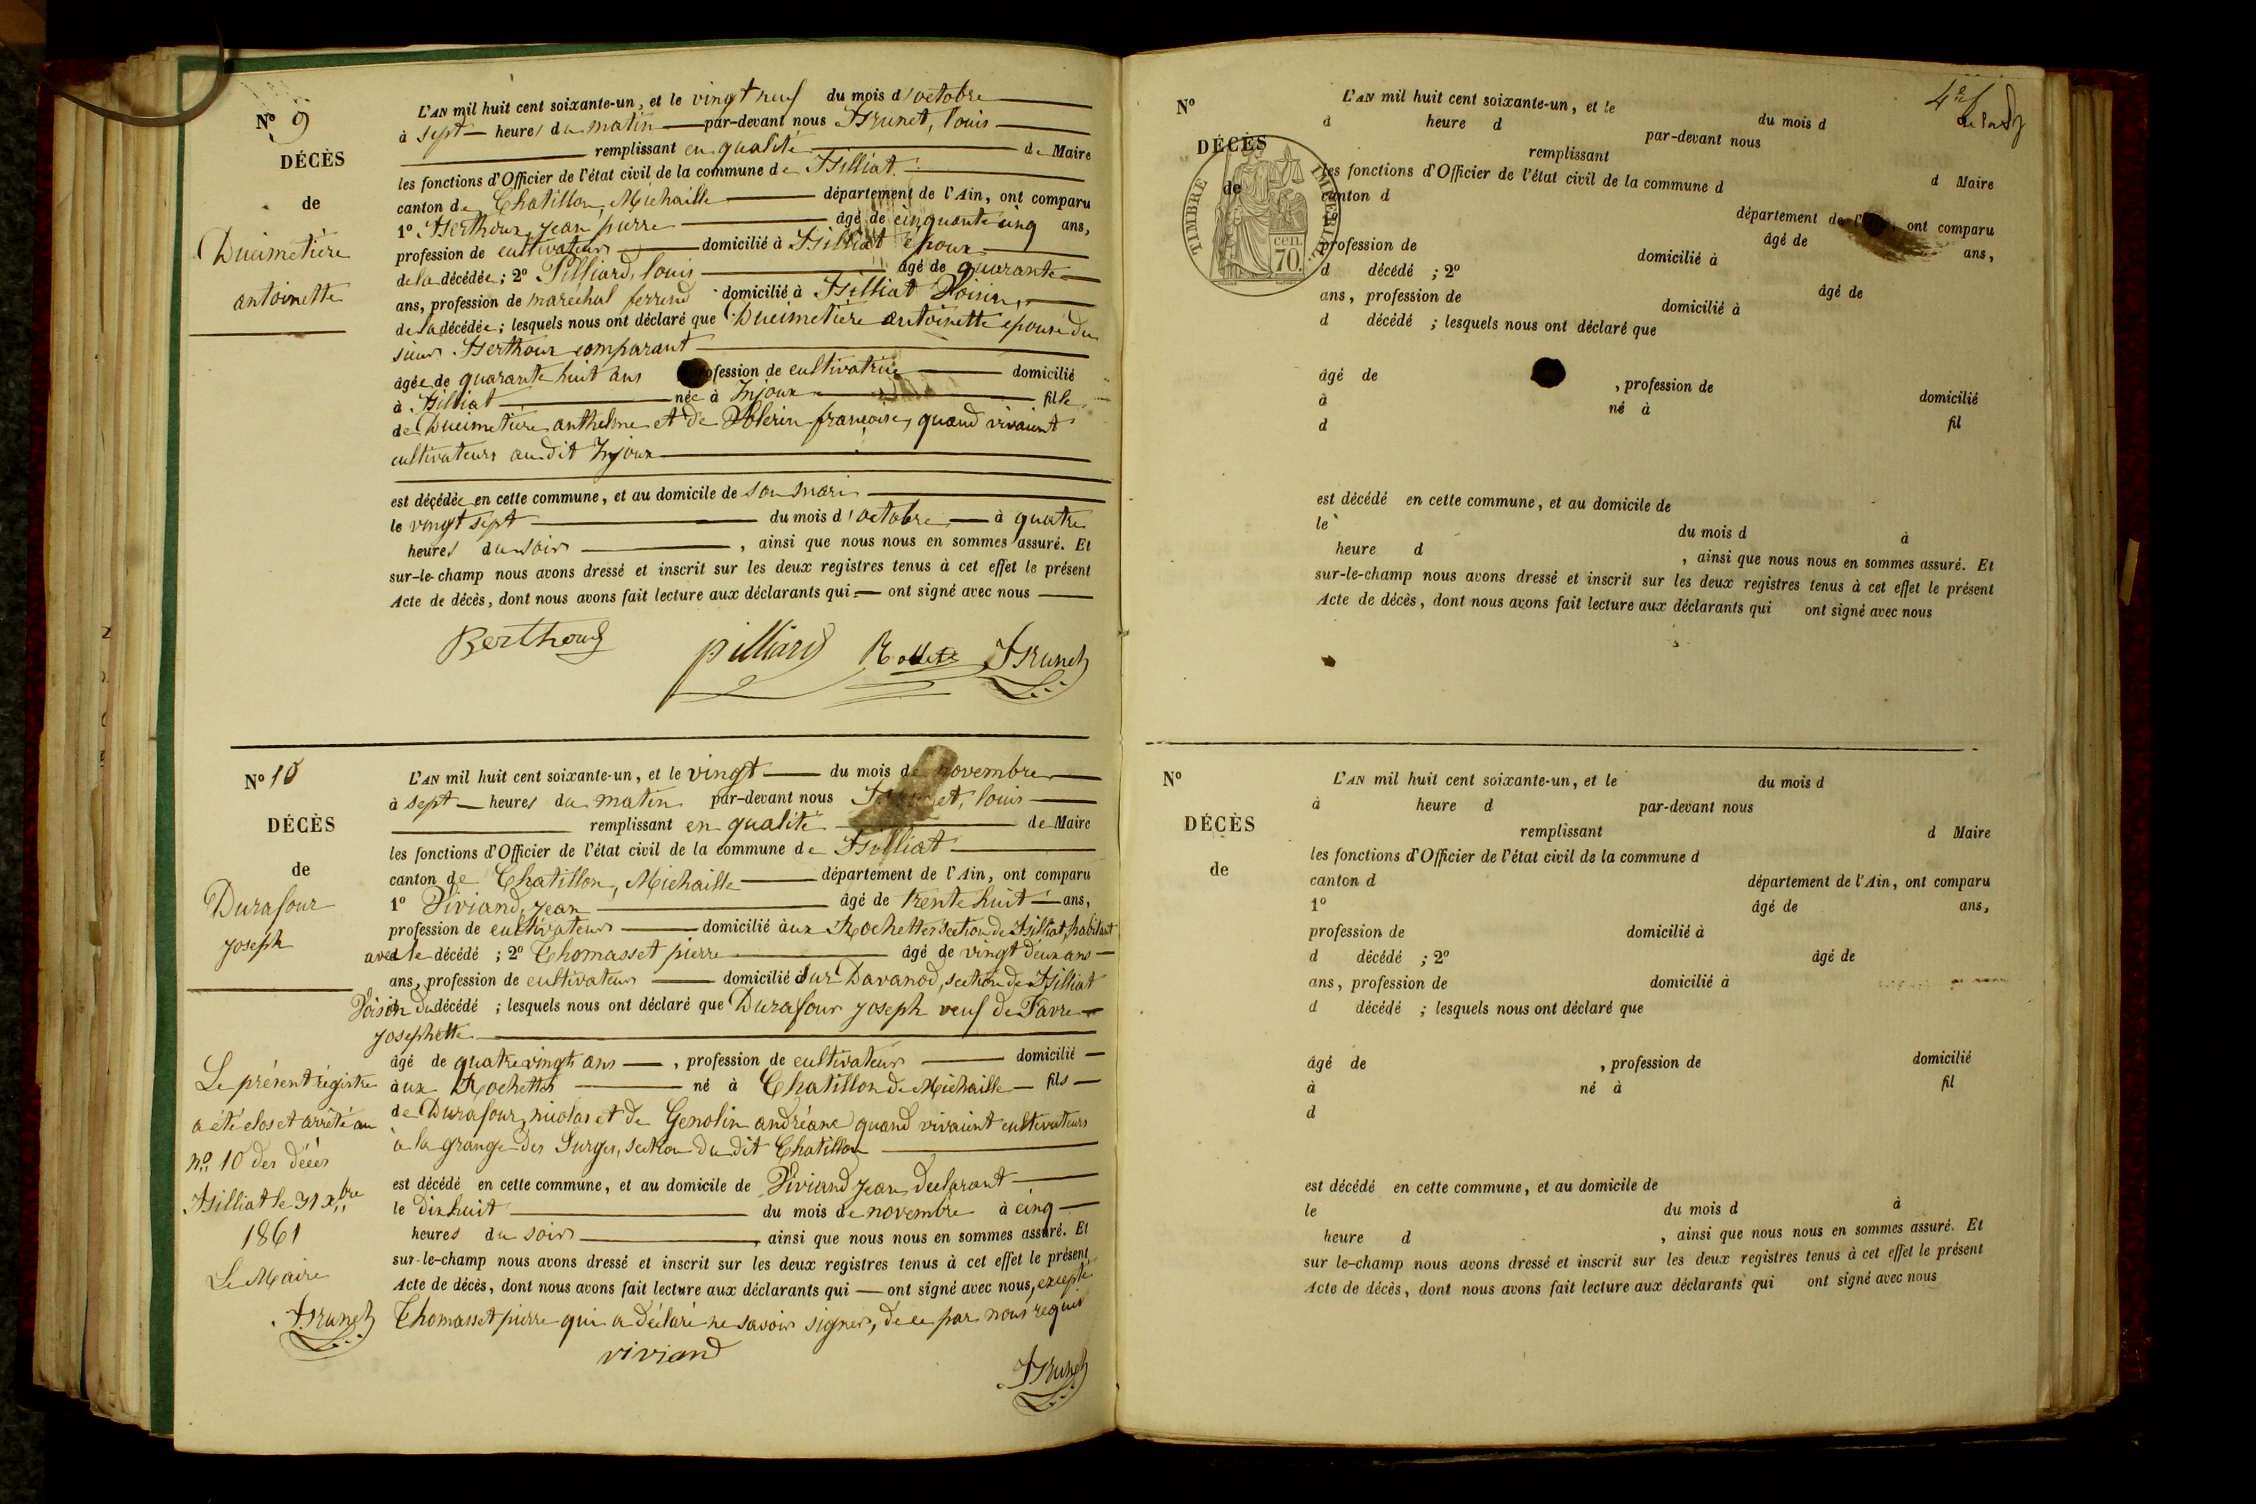 Nº 9
DÉCÈS
de
Ducimetière
antoinette
L'AN mil huit cent soixante-un, et le vingt neuf du mois d'octobre
à sept heures du matin par-devant nous Brunet, louis
remplissant en qualité de Maire
les fonctions d'Officier de l'état civil de la commune de Billiat
canton de Chatillon, Michaille département de l'Ain, ont comparu
1º Berthoux, jean pierre âgé de cinquante cinq ans,
profession de cultivateur domicilié à Billiat époux
de la décédée; 2º Pilliard, louis âgé de quarante
ans, profession de maréchal ferrand domicilié à Billiat Voisin,
de la décédée; lesquels nous ont déclaré que Ducimetière antoinette épouse du
sieur Berthoux comparant
âgée de quarante huit ans profession de cultivatrice domicilié
à Billiat née à Injoux fille
de Ducimetière anthelme et de françoise, quand vivaient
cultivateurs au dit Injoux
est décédée en cette commune, et au domicile de son mari
le vingt sept du mois d'octobre à quatre
heures du soir, ainsi que nous nous en sommes assuré. Et
sur-le-champ nous avons dressé et inscrit sur les deux registres tenus à cet effet le présent
Acte de décès, dont nous avons fait lecture aux déclarants qui ont signé avec nous
Berthoud pilliard Brunet
Nº 10
DÉCÈS
de
Durafour
joseph
L'AN mil huit cent soixante-un, et le vingt du mois de novembre
à sept heures du matin par-devant nous Brunet, louis
remplissant en qualité de Maire
les fonctions d'Officier de l'état civil de la commune de Billiat
canton de Chatillon, Michaille département de l'Ain, ont comparu
1º Viviand, jean âgé de trente huit ans,
profession de cultivateur domicilié aux Rochettes section de Billiat, habitant
avec le décédé; 2º Thomasset pierre âgé de vingt deux ans
ans, profession de cultivateur domicilié à Sur Davanod, section de Billiat
Voisin du décédé; lesquels nous ont déclaré que Durafour joseph veuf de Favre
josephette
âgé de quatre vingts ans, profession de cultivateur domicilié
aux Rochettes né à Chatillon de Michaille fils
de Durafour, nicolas et de Genolin andréane quand vivaient cultivateurs
à la grange des Surges, section du dit Chatillon
est décédé en cette commune, et au domicile de Viviand jean déclarant
le dix huit du mois de novembre à cinq
heures du soir, ainsi que nous nous en sommes assuré. Et
sur-le-champ nous avons dressé et inscrit sur les deux registres tenus à cet effet le présent
Acte de décès, dont nous avons fait lecture aux déclarants qui ont signé avec nous, excepté
Thomasset pierre qui a déclaré ne savoir signer, de ce par nous requis
viviand
Brunet
Le présent régistre
a été clos et arrêté au
nº 10 des décès
Billiat le 31 xbre
1861
Le Maire
Brunet
4e f
Nº
DÉCÈS
de
TIMBRE IMPÉRIAL
70 cen.
L'AN mil huit cent soixante-un, et le du mois d
à heure d par-devant nous
remplissant d Maire
les fonctions d'Officier de l'état civil de la commune d
canton d département de l' ont comparu
âgé de ans,
profession de domicilié à
d décédé; 2º âgé de
ans, profession de domicilié à
d décédé; lesquels nous ont déclaré que
âgé de, profession de domicilié
à né à fil
d
est décédé en cette commune, et au domicile de
le du mois d à
heure d, ainsi que nous nous en sommes assuré. Et
sur-le-champ nous avons dressé et inscrit sur les deux registres tenus à cet effet le présent
Acte de décès, dont nous avons fait lecture aux déclarants qui ont signé avec nous
Nº
DÉCÈS
de
L'AN mil huit cent soixante-un, et le du mois d
à heure d par-devant nous
remplissant d Maire
les fonctions d'Officier de l'état civil de la commune d
canton d département de l'Ain, ont comparu
1º âgé de ans,
profession de domicilié à
d décédé; 2º âgé de
ans, profession de domicilié à
d décédé; lesquels nous ont déclaré que
âgé de, profession de domicilié
à né à fil
d
est décédé en cette commune, et au domicile de
le du mois d à
heure d, ainsi que nous nous en sommes assuré. Et
sur le-champ nous avons dressé et inscrit sur les deux registres tenus à cet effet le présent
Acte de décès, dont nous avons fait lecture aux déclarants qui ont signé avec nous